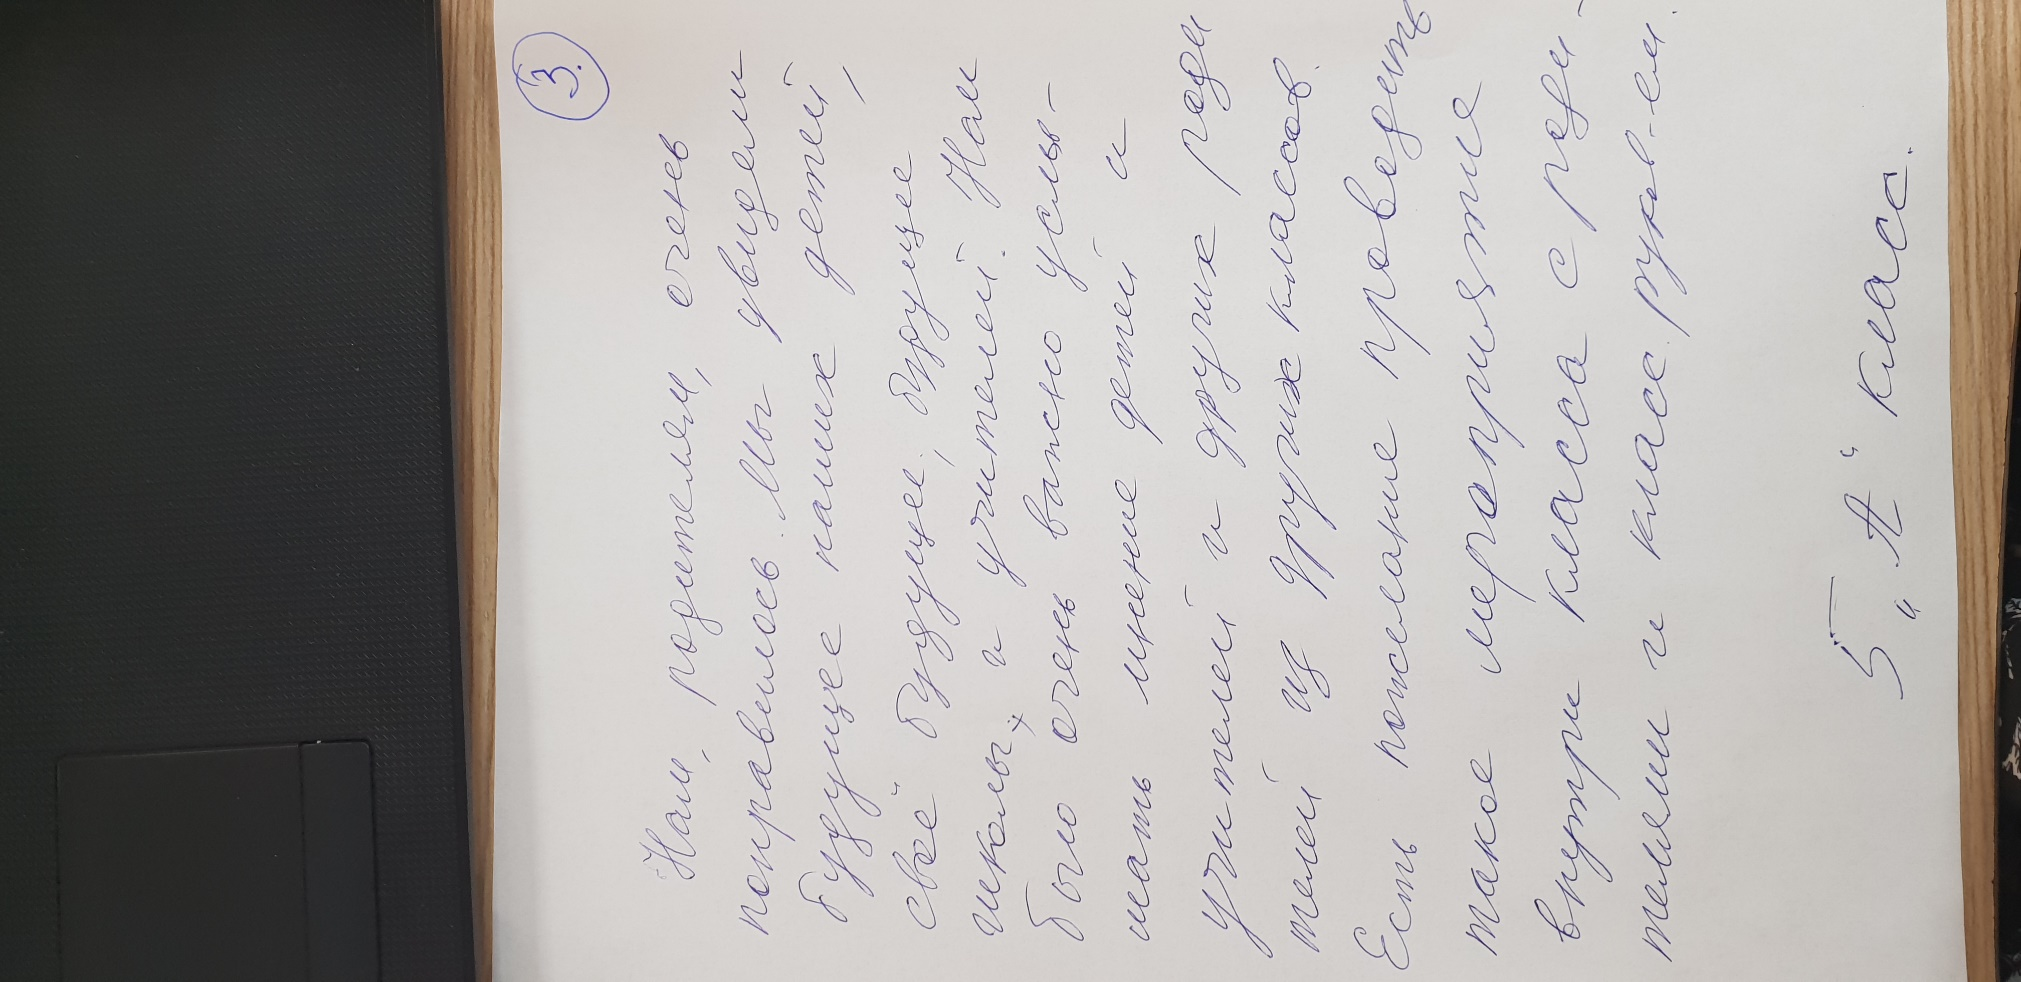 3.
Нам, родителям, очень
понравилось. Мы увидели
будущее наших детей,
своё будущее, будущее
школы, и учителей. Нам
было очень важно услы-
шать мнение детей и
учителей и других роди
телей из других классов.
Есть пожелание проводить
такое мероприятие
внутри класса с роди-
телями и класс. руков-ем.
5 "А" класс.